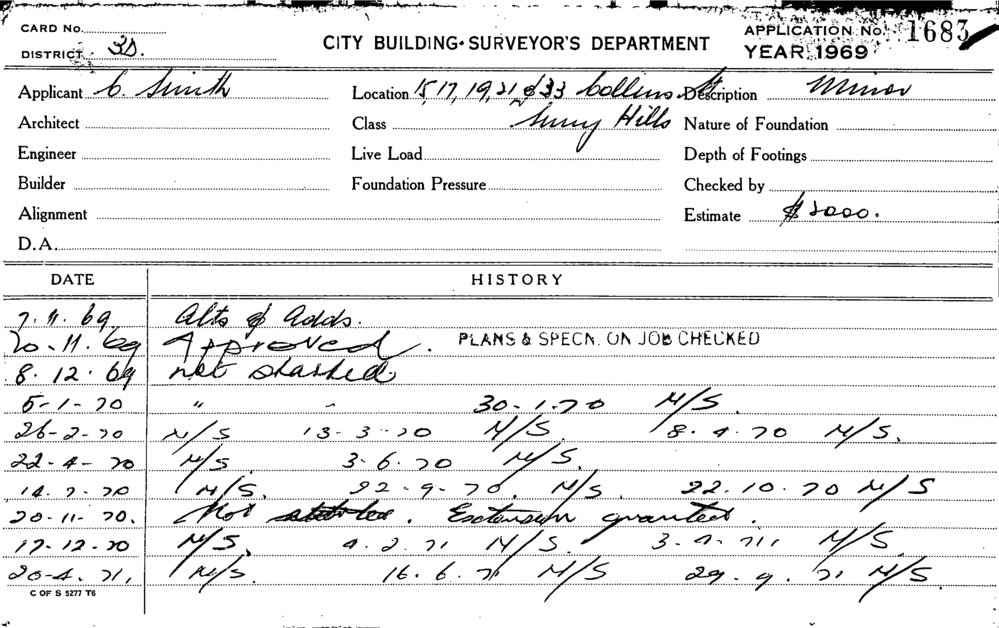 CARD No.
DISTRICT 3D.
CITY BUILDING SURVEYOR'S DEPARTMENT
APPLICATION No. 1683
YEAR 1969
Applicant C. Smith Location 15, 17, 19, 21 & 33 Collins St Description Minor
Architect Class Surry Hills Nature of Foundation
Engineer Live Load Depth of Footings
Builder Foundation Pressure Checked by
Alignment Estimate $2000.
D.A.
DATE HISTORY
7.11.69 Alts & Adds.
20.11.69 Approved. PLANS & SPECN. ON JOB CHECKED
8.12.69 not started
5-1-70 " " 30-1-70 N/S.
26-2-70 N/S 13-3-70 N/S. 8-4-70 N/S.
22-4-70 N/S. 3-6-70 N/S.
14.7-70 N/S. 22-9-70. N/S. 22.10.70 N/S
20-11-70. Not started. Extension granted.
17-12-70 N/S. 4-2-71 N/S. 3-4-71, N/S.
20-4.71, N/S. 16.6.71 N/S 29.9.71 N/S.
C OF S 5277 T6